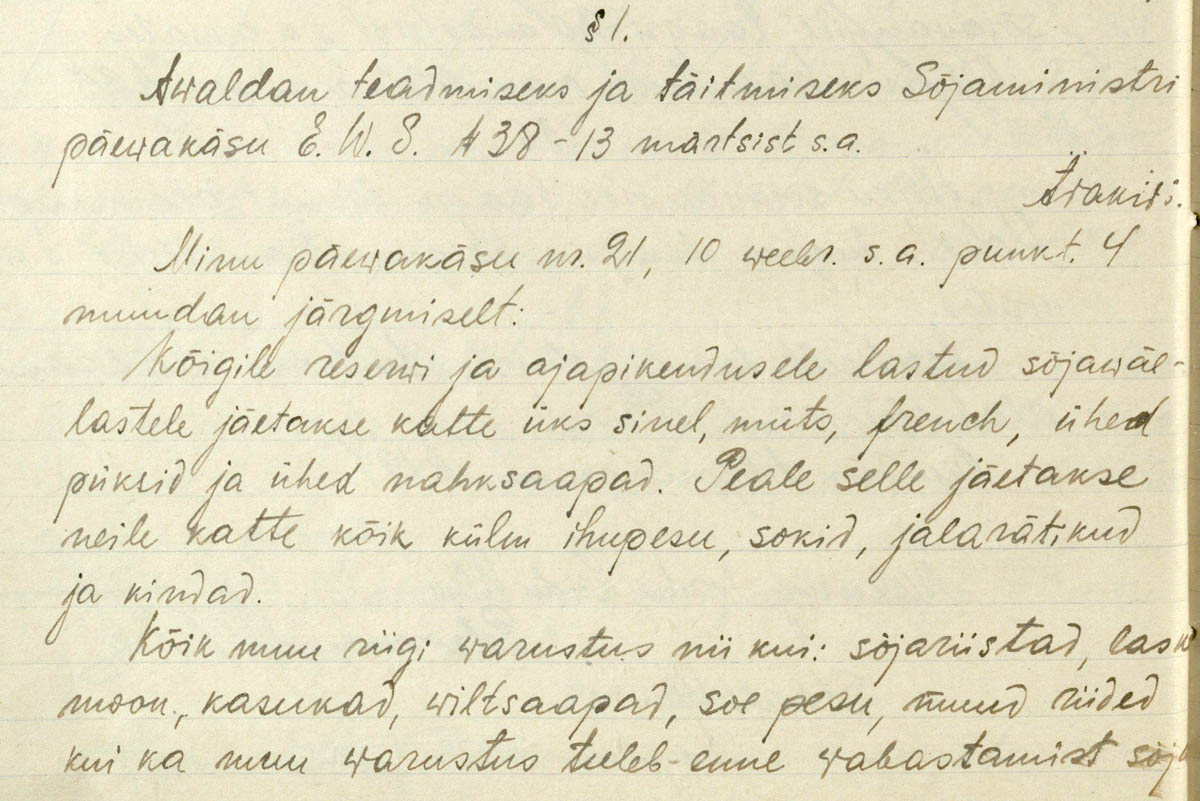 § 1.
Awaldan teadmiseks ja täitmiseks Sõjaministri
päewakäsu E. W. S. № 38 – 13 martsist s.a.
Ärakiri.
Minu päewakäsu nr. 21, 10 weebr. s.a. punkt. 4
muudan järgmiselt:
Kõigile reserwi ja ajapikendusele lastud sõjawäe-
lastele jäetakse katte üks sinel, müts, french, ühed
püksid ja ühed nahksaapad. Peale selle jäetakse
neile katte kõik külm ihupesu, sokid, jalarätikud
ja kindad.
Kõik muu riigi warustus nii kui: sõjariistad, lask
moon, kasukad, wiltsaapad, soe pesu, muud riided
kui ka muu warustus tuleb enne wabastamist